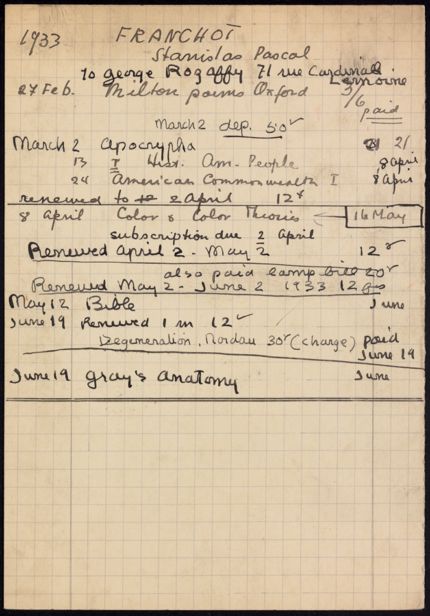 1933 FRANCHOT
Stanislas Pascal
to George Rogaffy 71 rue Cardinal Lemoine
27 Feb. Milton poems Oxford 3/6 paid
March 2 dep. 50
March 2 Apocrypha 21
13 I Hist. Am. People 8 April
24 American Commonwealth I 8 April
renewed to 2 April 12
8 April Color & Color Theories 16 May
subscription due 2 April
Renewed April 2 - May 2 12
also paid lamp bill 20
Renewed May 2 - June 2 1933 12
May 12 Bible June
June 19 Renewed 1 m 12
Degeneration. Nordau 30 (charge) paid June 19
June 19 Gray's Anatomy June